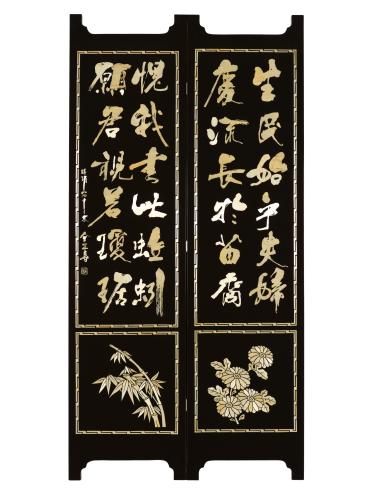 生民始乎夫婦
慶流長於苗裔
愧我書此蚯蚓
願君視若瓊琚